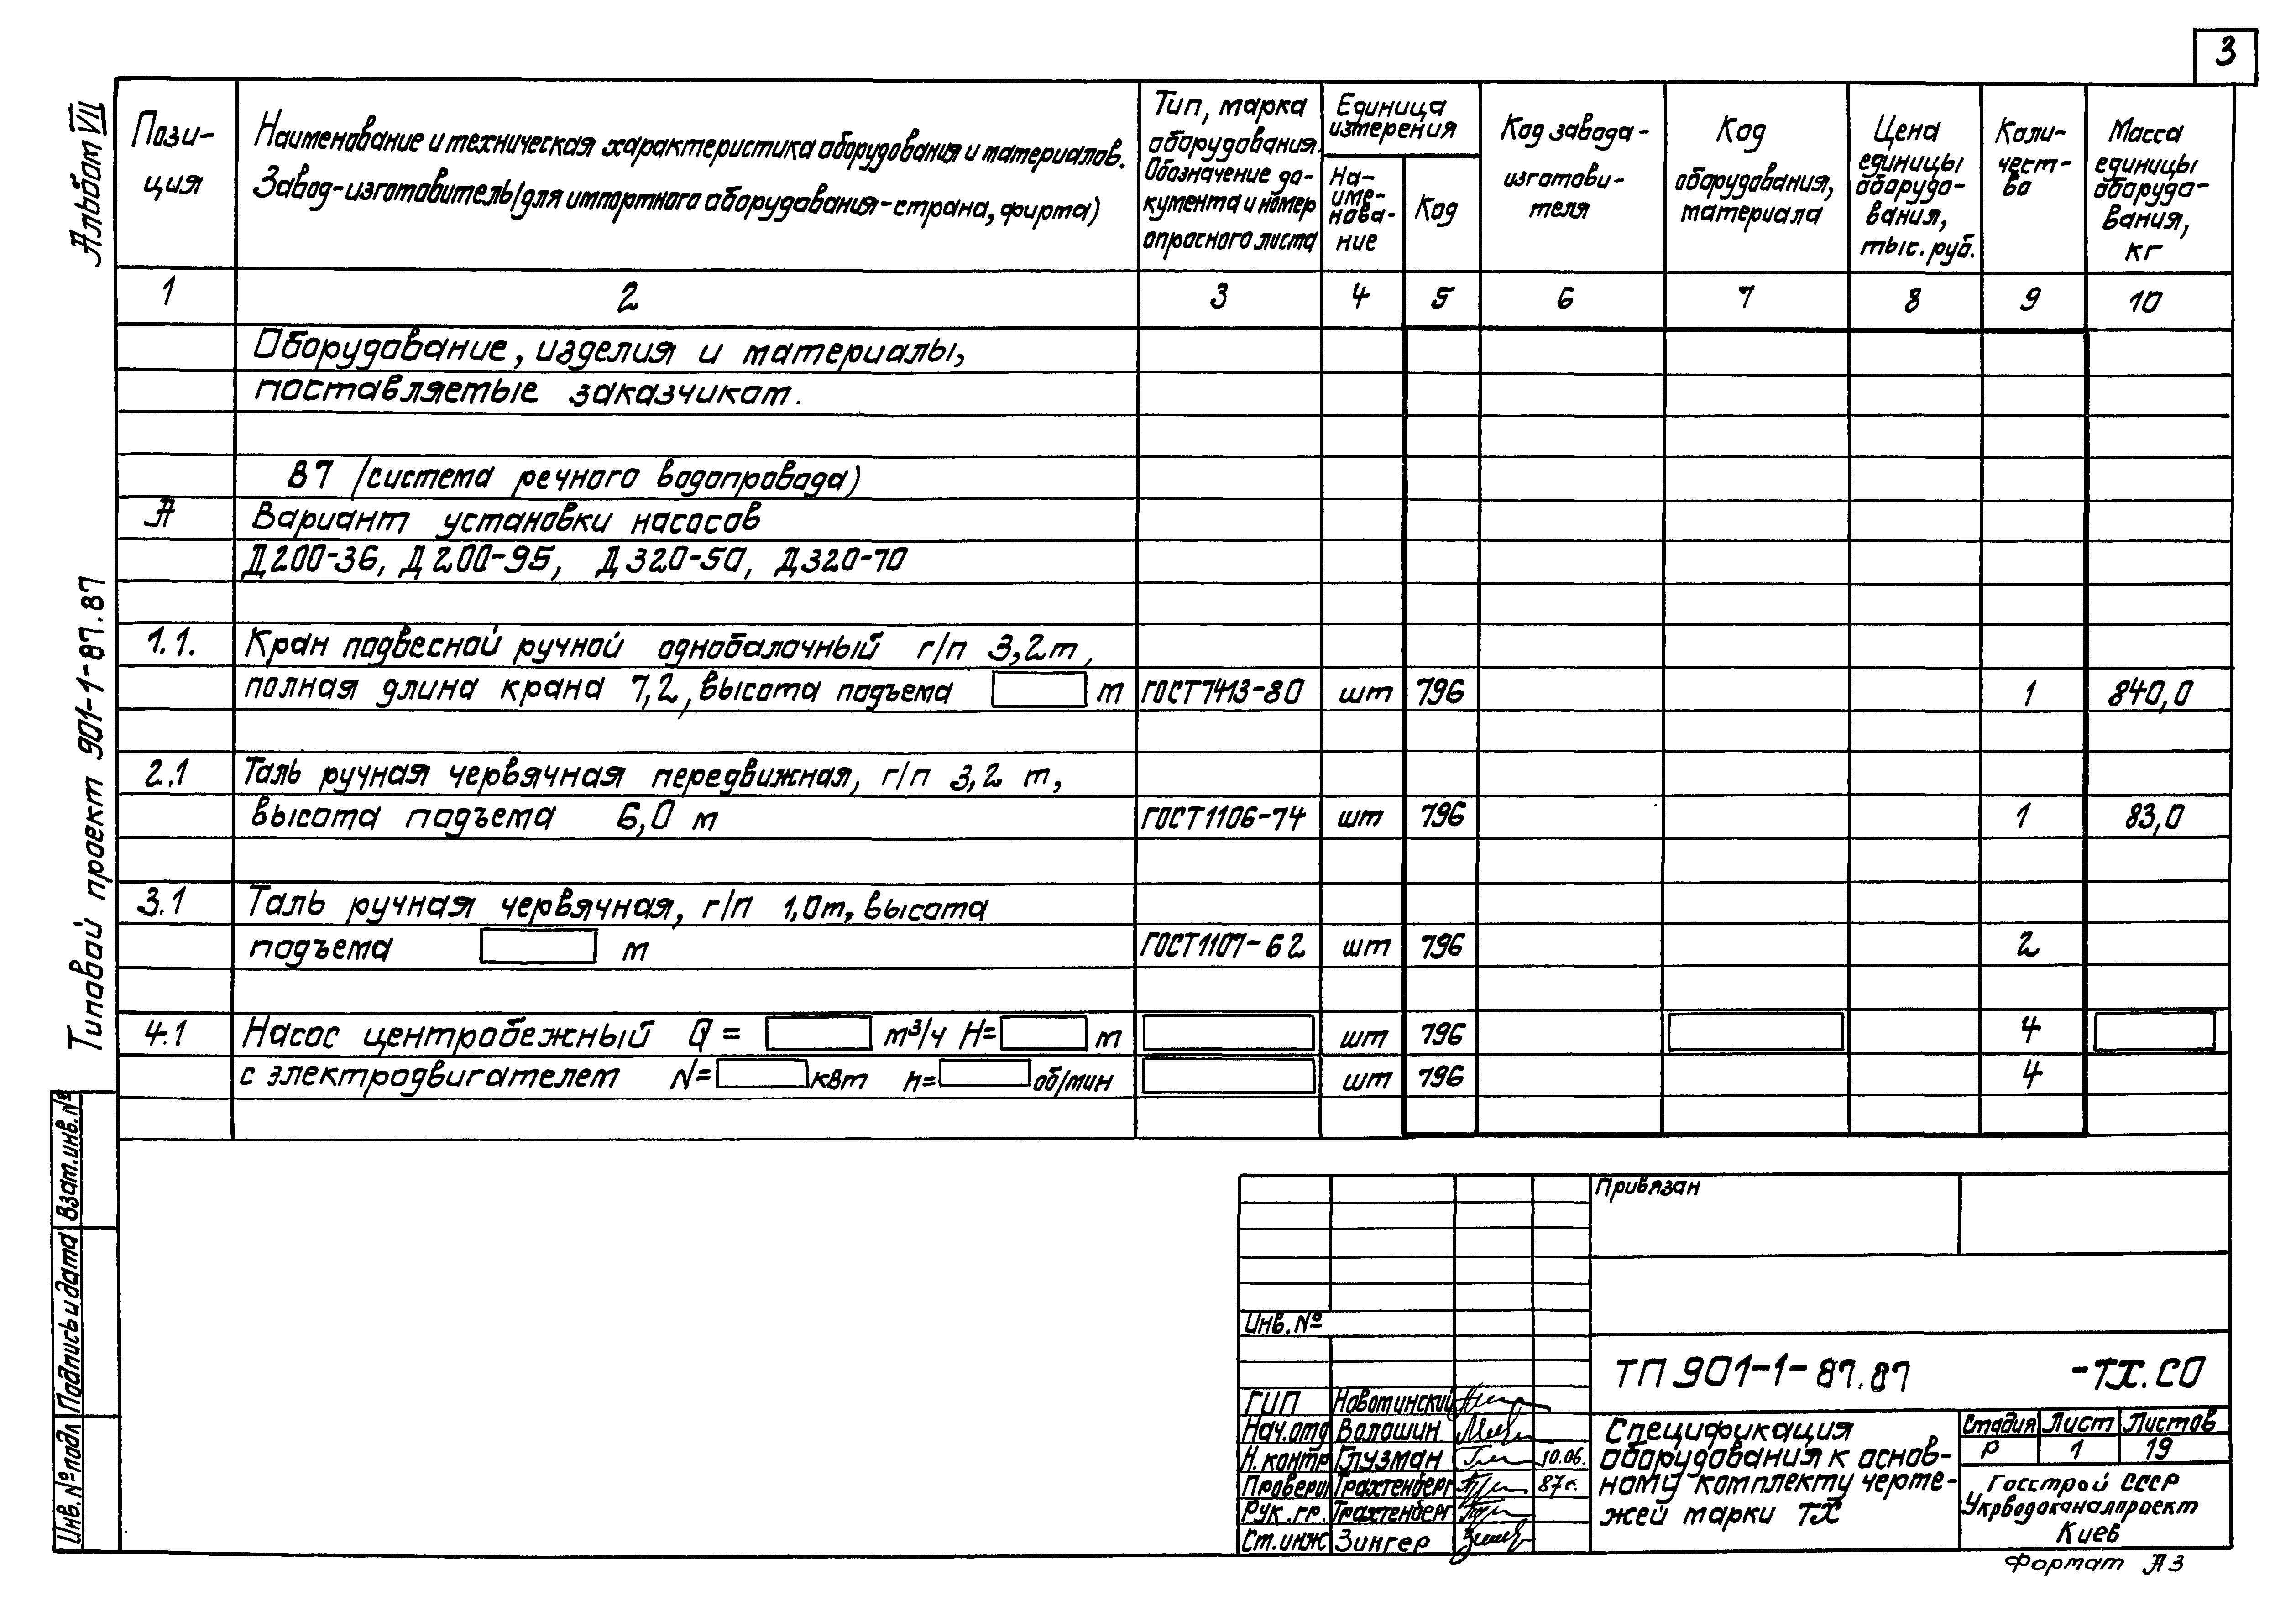 3
Альбом VII
Типовой проект 901-1-87.87
Пози-
ция
Наименование и техническая характеристика оборудования и материалов.
Завод-изготовитель (для импортного оборудования-страна, фирма)
Тип, марка
оборудования.
Обозначение до-
кумента и номер
опросного листа
Единица
измерения
На-
име-
нова-
ние
Код
Код завода-
изготови-
теля
Код
оборудования,
материала
Цена
единицы
оборудо-
вания,
тыс. руб.
Коли-
чест-
во
Масса
единицы
оборудо-
вания,
кг
1 2 3 4 5 6 7 8 9 10
Оборудование, изделия и материалы,
поставляемые заказчиком.
В7 (система речного водопровода)
А Вариант установки насосов
Д200-36, Д200-95, Д320-50, Д320-70
1.1. Кран подвесной ручной однобалочный г/п 3,2т,
полная длина крана 7,2, высота подъема м ГОСТ7413-80 шт 796 1 840,0
2.1 Таль ручная червячная передвижная, г/п 3,2 т,
высота подъема 6,0 м ГОСТ1106-74 шт 796 1 83,0
3.1 Таль ручная червячная, г/п 1,0т, высота
подъема м ГОСТ1107-62 шт 796 2
4.1 Насос центробежный Q = м³/ч H= м шт 796 4
с электродвигателем N= квт n= об/мин шт 796 4
Взам.инв.№
Подпись и дата
Инв.№подл
Привязан
Инв.№
ТП 901-1-87.87 -ТХ.СО
ГИП Новоминский
Нач.отд Волошин
Н.контр Глузман 10.06.
Проверил Трахтенберг 87г.
Рук.гр. Трахтенберг
Ст.инж Зингер
Спецификация
оборудования к основ-
ному комплекту черте-
жей марки ТХ
Стадия Лист Листов
Р 1 19
Госстрой СССР
Укрводоканалпроект
Киев
Формат А3